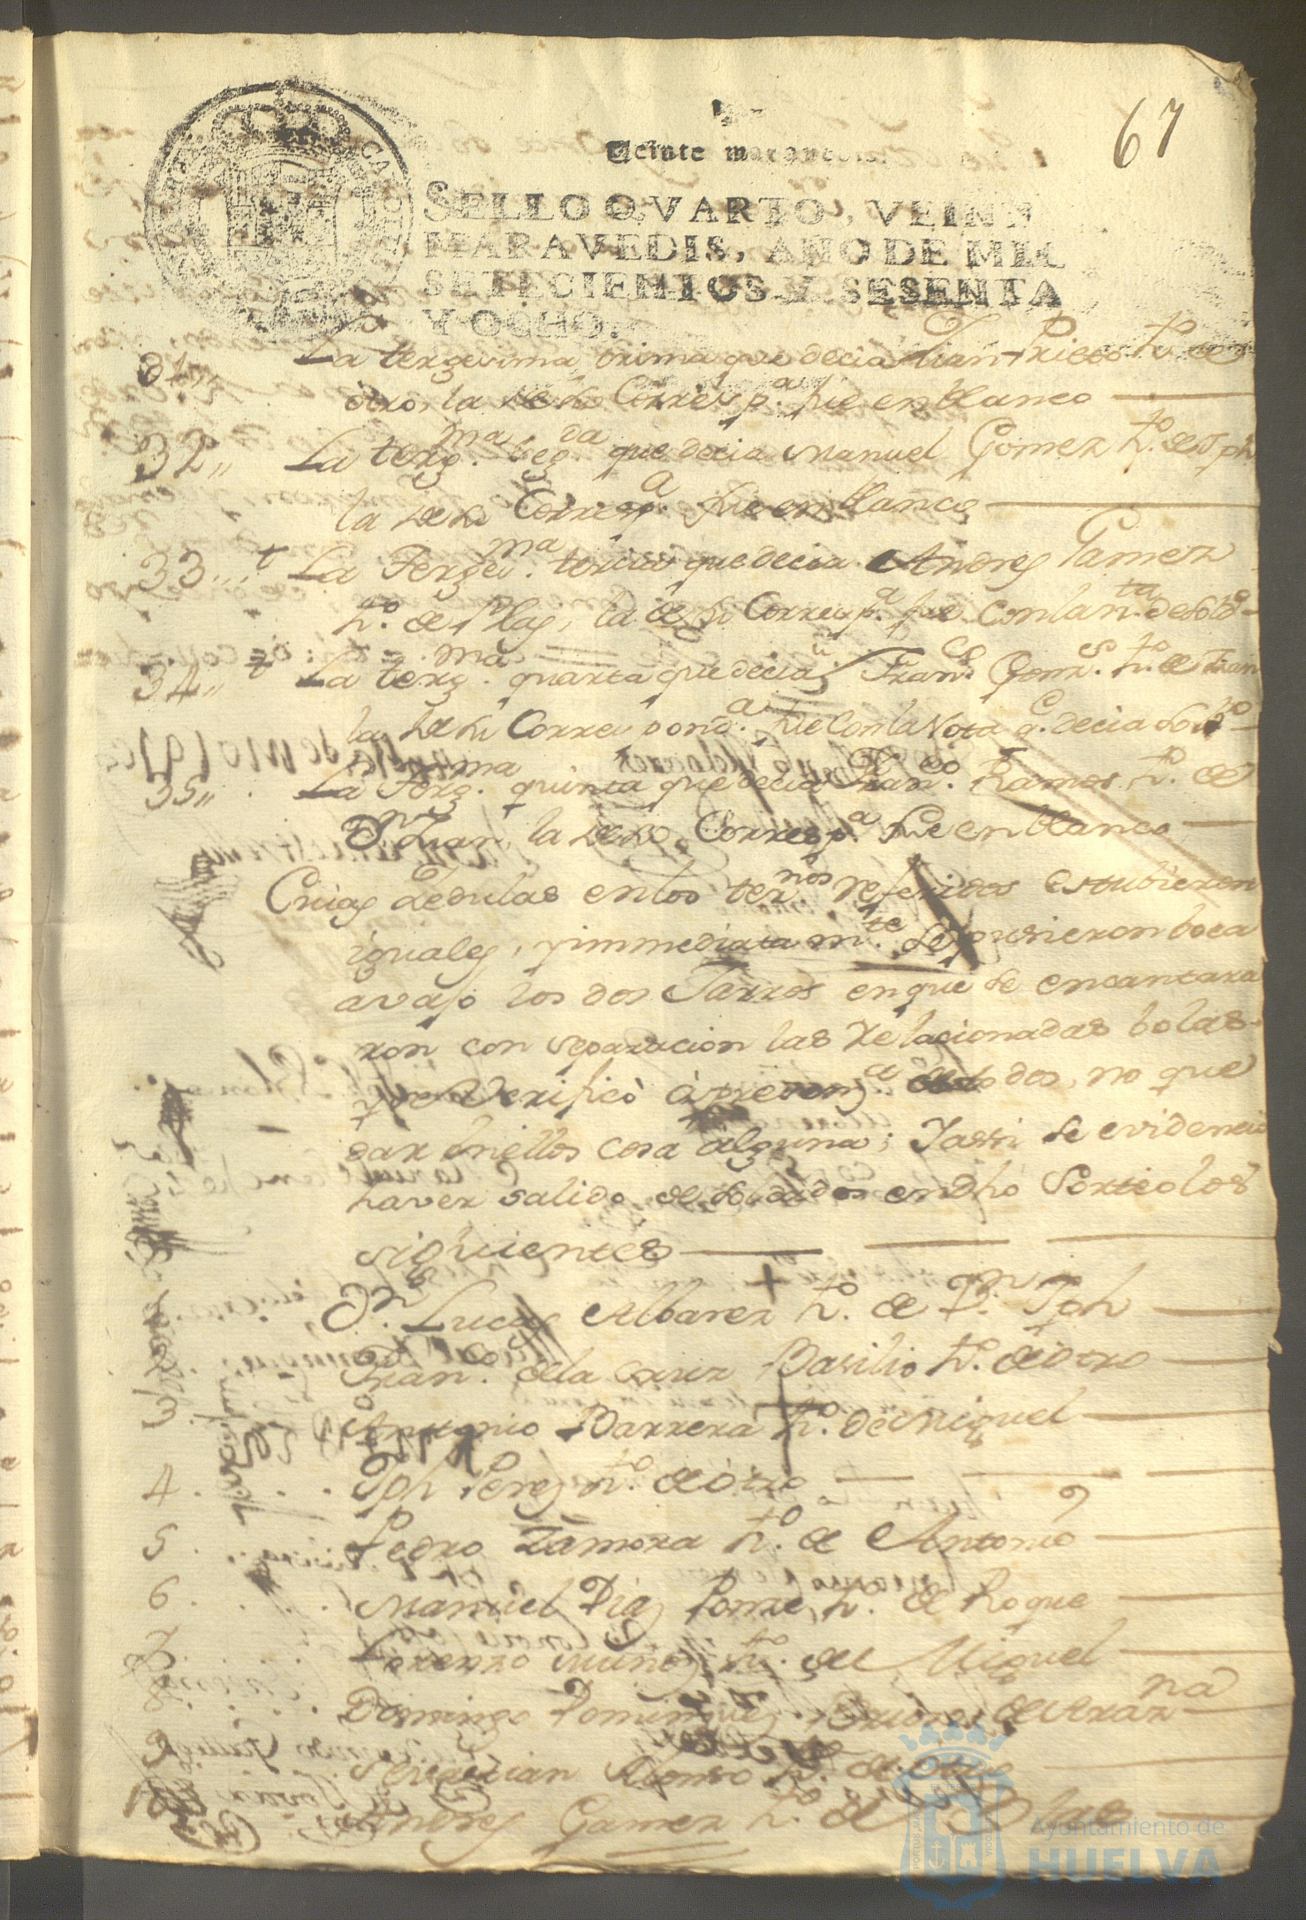 67
Veinte maravedis.
SELLO QVARTO, VEINT
MARAVEDIS, AÑO DE MIL
SETECIENTOS Y SESENTA
Y OCHO.
31,, La tergesima prima que decia Juan Prieto hº de
otro, la de su Correspª. fue en blanco
32,, La tergma. segda que decia Manuel Gomez hº. de Jph
la de su Correspª. fue en blanco
33,, t La Tergeima. tercia que decia Andres Gamez
hº. de Blas, la de su Correspª. fue con la nta. de soldº
34,, t La tergma. quarta que decia Francº. Gonzs. hº. de Juan
la de su Correspondª. fue con la Nota q. decia soldº
35,, La Tergma. quinta que decia Franco. Ramos hº. de
Dn Juan, la de su Correspª fue en blanco
Cuias Zedulas en los ternos referidos estubieron
iguales, y immediatamte. se pusieron boca
avajo los dos Jarros en que se encantara
ron con separacion las relacionadas bolas
que verificò à presenza de todos, no que
dar en ellos cosa alguna; Y assi se evidenciò
haver salido de soldados en dhò Sorteo los
siguientes
Dn. Lucas Albarez hº. de Dn. Jph
Franco. de la Cruz Basilio hº. de otro
3. Anttonio Barrera hº. de Miguel
4. Jph Perez hº. de otro
5. Pedro Zamora hº. de Antonio
6. Manuel Diaz Ponze, hº. de Roque
7. Lorenzo Muñoz hº. de Miguel
8. Dominguez
9. Sevastian Alonso hº. de otro
10. Andres Gamez hº de Blas
Ayuntamiento de
HUELVA